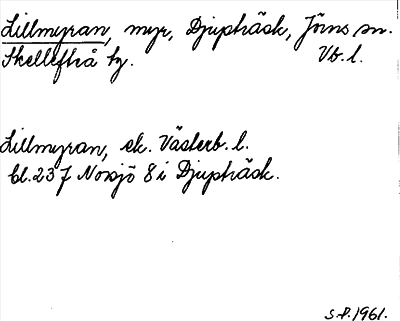 Lillmyran, myr, Djupträsk, Jörns sn.
Skellefteå tg. Vb. l.
Lillmyran, ek. Västerb. l.
bl. 23 f Norsjö 8 i Djupträsk.
S.P. 1961.